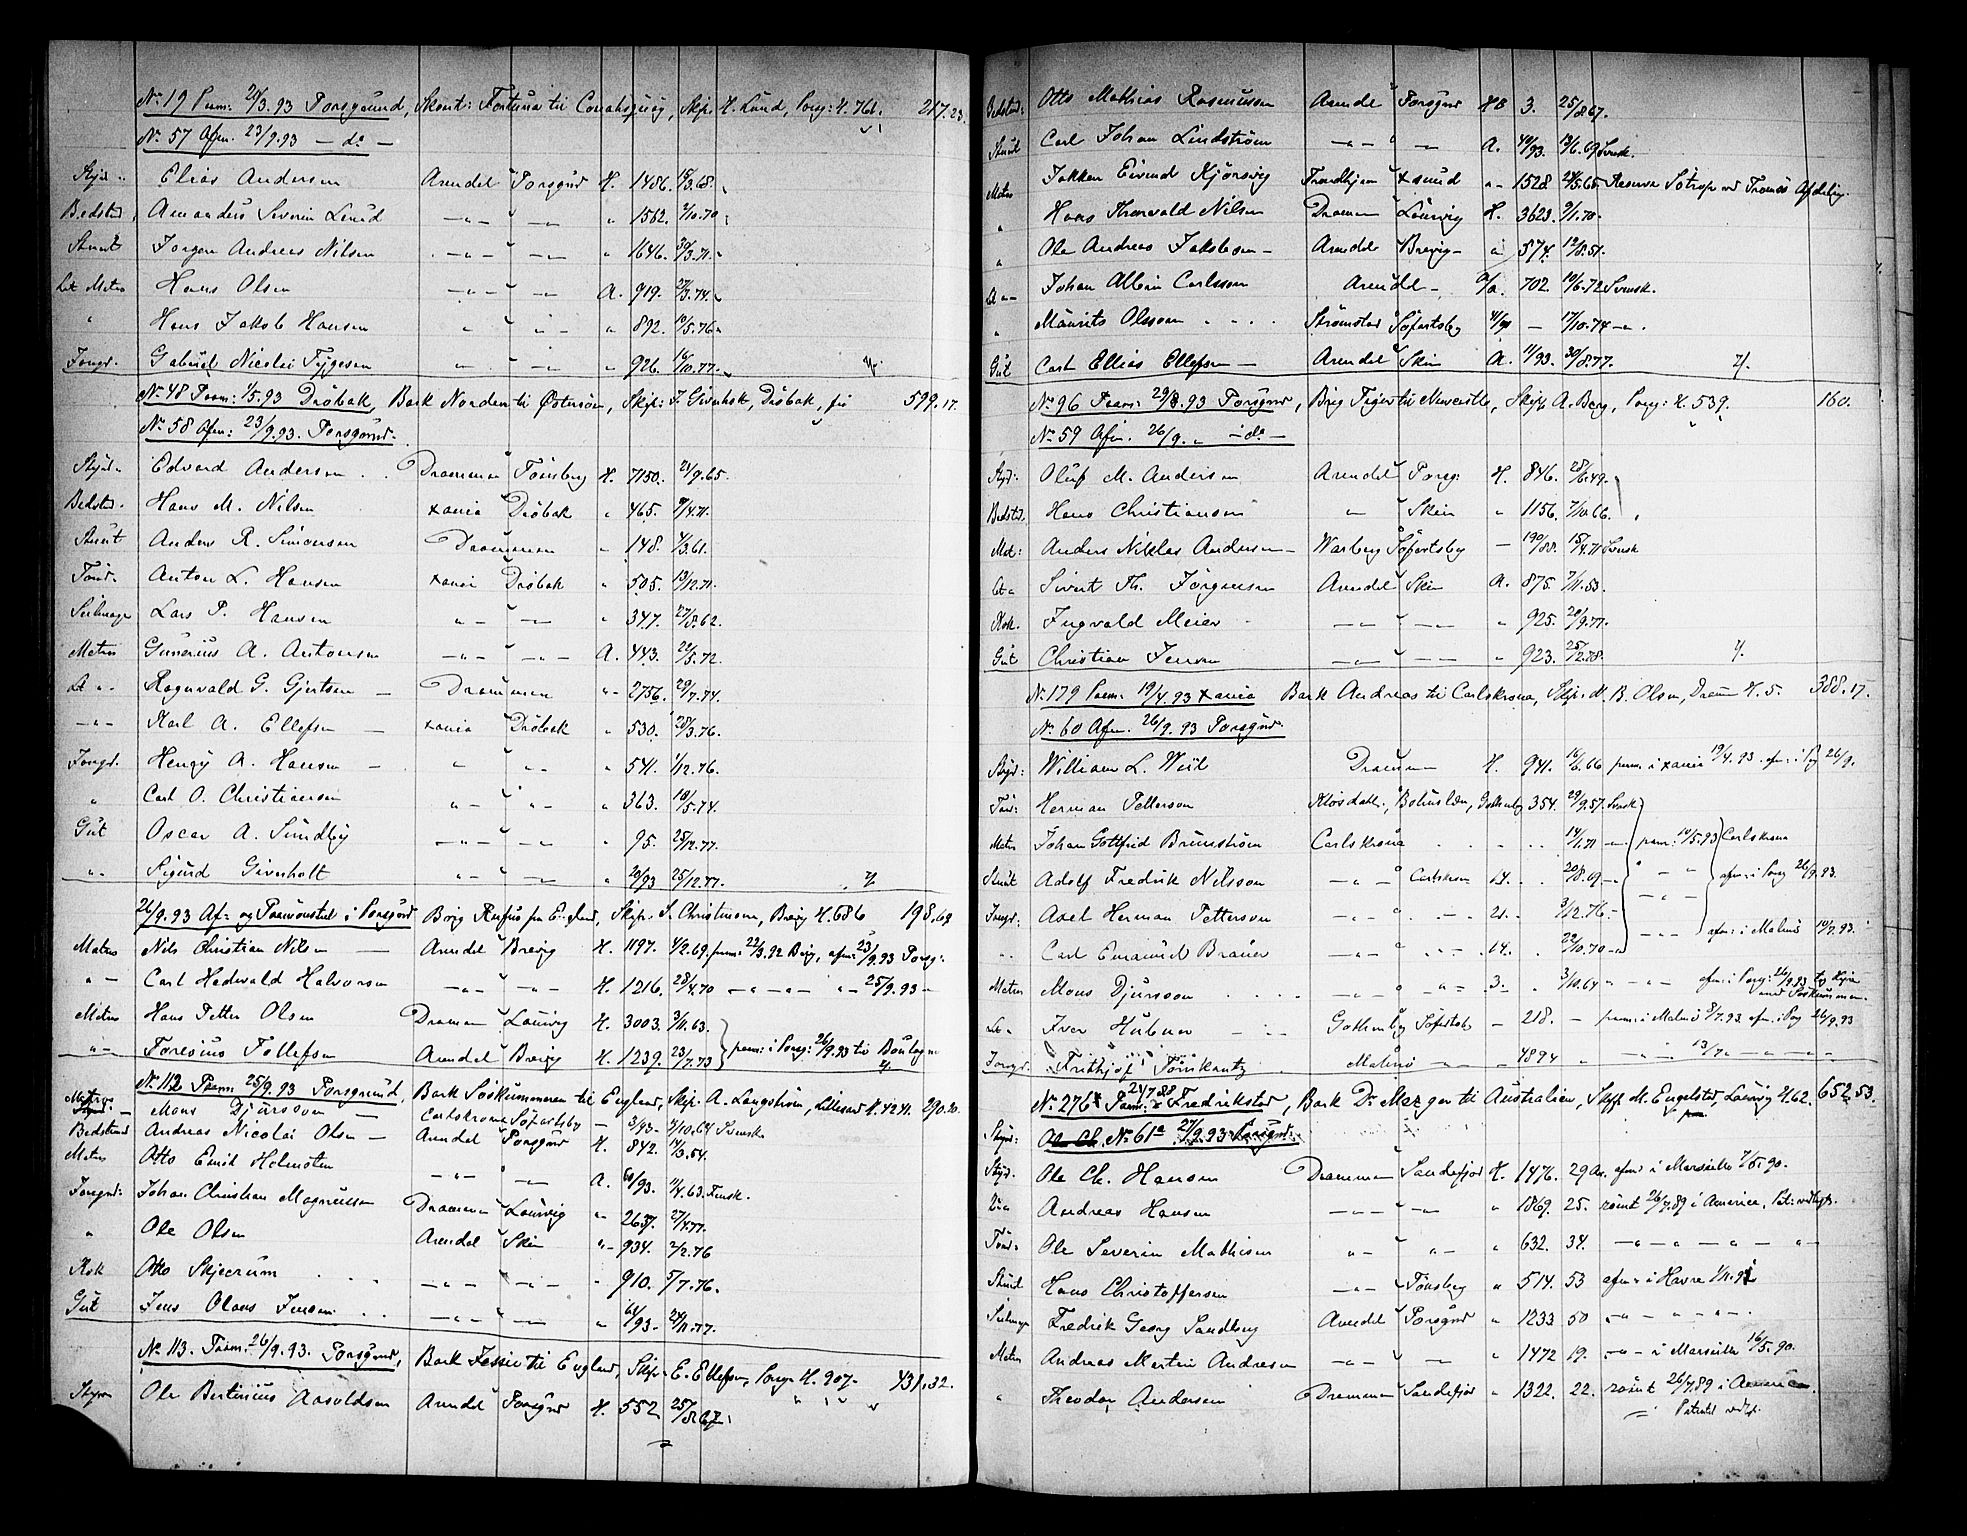 No 19 Paam: 20/3.93 Porsgrund, Skont: Fortuna til , Skp. H. Lund, Porsg: H. 761. 217.23.
No 57 Afm. 23/9.93 — do —
Elias Andersen Arendel Porsgrd H. 1486. 18/3.68.
Bedstd. Amandus Severin Lund — " — " — " 1562. 2/10.70
Stuert Jørgen Andreas Nilsen — " — " — " 1646. 30/3.71.
Let Matros Hans Olsen — " — " — A. 919. 27/3.74.
" Hans Jakob Hansen " " " 892. 10/5.76.
Jongd. Gabriel Nicolai Tygesen " " " 926. 16/10.77.
No 48 Paam: 1/5.93 Drøbak, Bark Norden til Østersøen, Skp: J. Givnholt, Drøbak, 599.17.
No 58 Afm: 23/9.93. Porsgrund.
Edvard Andersen Drammen Tønsberg H. 7150. 21/9.65.
Bedstd. Hans M. Nilsen xania Drøbak " 465. 9/4.71.
Stuert Anders R. Simonsen Drammen " 148. 4/3.61.
Tømd. Anton L. Hansen xania Drøbak " 505. 13/12.71.
Seilmager Lars P. Hansen " " " 347. 27/8.62.
Matros Gunerius A. Antonsen — " — A. 443. 22/5.72.
Let " Ragnvald G. Gjertsen — Drammen " 2756. 29/7.74.
— " — Karl A. Ellefsen — xania Drøbak " 530. 28/3.76.
Jongd. Henry A. Hansen — " " " 541. 1/12.76.
" Carl O. Christiansen " " " 363. 18/5.74.
Gut Oscar A. Sundby — " — " " 95. 25/12.77.
" Sigurd Givnholt — " — " " 20/93 25/12.77.
26/9.93 Af= og Paamønstret i Porsgrd Brig Rufus fra England, Skp. S. Christensen, Brevig H. 686 198.69
Matros Nils Christian Nilsen — Arendel Brevig H. 1197. 4/2.69. paam: 22/3.92 Brvg, afm: 23/9.93 Porsg:
" Carl Hedevald Halvorsen — " — " H. 1216. 28/4.70 — " — " — " 25/9.93 —
Matros Hans Petter Olsen Drammen Laurvig H. 3003. 3/11.63.
" Toresius Tollefsen Arendel Brevig H. 1239. 23/7.73 paam: i Porsg: 26/9.93 til Boulogne
No 112 Paam: 25/9.93 Porsgrund, Bark Soskummeren til England, Skp. A. Langstrøm, Lillesand H. 4241. 290.20.
Matros Mons Djursson — Carlskrona Søfartsby — 3/93 3/10.64 Svensk
Bedstmd Andreas Nicolai Olsen — Arendel Porsgrund H. 842. 14/3.54.
Matros Otto Emil Holmsten — " — " A. 60/93. 11/4.63. Finsk.
Jongmd: Johan Christian Magnussen Drammen Laurvig " 2637. 27/4.77.
" Ole Olsen Arendel Skien " 934. 2/2.76
Kok Otto Skjerum — " — " 910. 5/7.76.
Gut Jens Olaus Jensen — " — " 61/93 — 24/11.77.
No 113. Paam. 26/9.93. Porsgrund, Bark Jessie til England, Skp. E. Ellefsen, Porsg: H. 907. 431.32.
Styrm Ole Bertinius Arvoldsen Arendel Porsgrd H. 552 25/8.67.
Bedstd: Otto Mathias Rasmussen Arendel Porsgrd HB 3. 25/8.67.
Stuert Carl Johan Lindstrøm — " — A. 40/93. 13/6.69 Svensk.
Matros Jakken Eivend Kjørsvig Trondhjem xsund " 1528 24/5.65. Reserve Søtrop ved Tromsø Afdeling.
" Hans Thorvald Nilsen Drammen Laurvig H. 3623. 9/1.70.
" Ole Andreas Jakobsen — Arendel Brevig " 574. 12/8.51.
Let " Johan Albin Carlsson Arendel — 702. 19/6.72 Svensk.
" Maurits Olsson Strømstad Søfartsby 41/91 — 17/10.74 — " .
Gut Carl Ellias Ellefsen — Arendel Skien A. 11/93. 30/8.77.
No 96 Paam: 29/8.93 Porsgrd, Brig Tiger til Newcastle, Skp. A. Berg, Porsg: H. 539. 160.
No 59 Afm. 26/9. " — do —
Styd: Oluf M. Andersen Arendel Porsg: H. 846. 28/6.49.
Bedstd. Hans Christiansen " Skien " 1156. 7/10.66.
Mat: Anders Niklas Andersen — Warberg Søfartsby — 190/88. 15/4.71 Svensk
Let " Sivert Th. Jørgensen Arendel Skien A. 875. 7/11.53.
Kok. Ingvald Meier — " — " 925. 20/9.77.
Gut Christian Jensen — " — " 923. 25/2.78.
No 179 Paam: 19/4.93 xania Bark Andreas til Carlskrona, Skp. M. B. Olsen, Dram H. 5. 388.17.
No 60 Afm. 26/9.93 Porsgrd.
Styd: William L. Weil Drammen H. 941. 16/6.66 paam: i xania 19/4.93. afm: i Porsg 26/9.
Tøm: Herman Pettersson , Bohuslæn, Gothenbg 354. 29/9.57. Svensk
Matros Johan Gottfrid Brunstrøm Carlskrona 14/1.71 — " — paam: 10/5.93 Carlskrona
Stuert Adolf Fredrik Nilsson — " — Carlskrona 14. 20/8.69 — " — afm: i Porsg 26/9.93.
Jongd. Axel Herman Pettersson — " — 21. 3/12.76. —
" Carl Emanuel Brauer — " — 14. 22/10.70 — " afm: i Malmö 14/7.93.
Matros Mons Djursson — " — 3. 3/10.64 " — " — afm: i Porsg: 26/9.93 tog Hyre med Soskummeren.
Let " Iver Hubner Gothenbg Søfartsby — 218. — paam: i Malmö 9/7.93. afm: i Porsg 26/9.93
Jongd. Frithjof Tönskantz Malmö — 4894 " — " — 13/7. " — " —
No 276 Paam: 24/7.88 i Fredrikstad, Bark Dr Mezger til Australien, Skpf. M. Engelstad, Laurvig H. 62. 652.53.
Styd: Ole Ch. No 61a 27/9.93 Porsgrd:
Styd. Ole Ch. Hansen Drammen Sandefjord H. 1476. 29 Ar. afm: i Marseille 7/5.90.
2n " Andreas Hansen — " — " 1869. 25. rømt 26/7.89 i America,
Tømd: Ole Severin Mathisen " " " 632. 34. — " — " — " —
Stuert Hans Christoffersen — " — Tønsberg " 514. 53 afm: i Havre
Seilmager Fredrik Georg Sandberg Arendel Porsgrd " 1233 50 — " — " —
Matros Andreas Martin Andresen — " — " 1472 19. — " — i Marseille 16/5.90.
" Theodor Andersen Drammen Sandefjord " 1322. 22. rømt 26/7.89 i America.